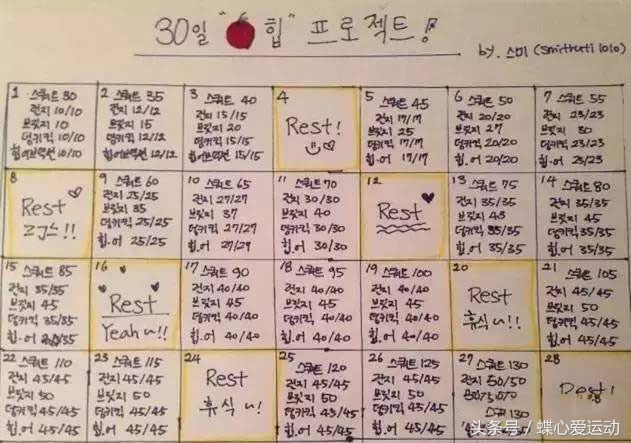 30일 "힙" 프로젝트!
by. 스미 (Smittuti lolo)
1 스쿼트 30
런지 10/10
브릿지 10
덩키킥 10/10
힙어브덕션 10/10
2 스쿼트 35
런지 12/12
브릿지 15
덩키킥 12/12
힙어브덕션 12/12
3 스쿼트 40
런지 15/15
브릿지 20
덩키킥 15/15
힙어브덕션 15/15
4
Rest!
5 스쿼트 45
런지 17/17
브릿지 25
덩키킥 17/17
힙.어 17/17
6 스쿼트 50
런지 20/20
브릿지 27
덩키킥 20/20
힙.어 20/20
7 스쿼트 55
런지 23/23
브릿지 30
덩키킥 23/23
힙.어 23/23
8
Rest
굿!!
9 스쿼트 60
런지 25/25
브릿지 35
덩키킥 25/25
힙.어 25/25
10 스쿼트 65
런지 27/27
브릿지 37
덩키킥 27/27
힙.어 27/27
11 스쿼트 70
런지 30/30
브릿지 40
덩키킥 30/30
힙.어 30/30
12
Rest
13 스쿼트 75
런지 35/35
브릿지 43
덩키킥 35/35
힙.어 35/35
14 스쿼트 80
런지 35/35
브릿지 45
덩키킥 35/35
힙.어 35/35
15 스쿼트 85
런지 35/35
브릿지 45
덩키킥 35/35
힙.어 35/35
16
Rest
Yeah~!!
17 스쿼트 90
런지 40/40
브릿지 45
덩키킥 40/40
힙.어 40/40
18 스쿼트 95
런지 40/40
브릿지 45
덩키킥 40/40
힙.어 40/40
19 스쿼트 100
런지 40/40
브릿지 45
덩키킥 40/40
힙.어 40/40
20
Rest
휴식~!!
21 스쿼트 105
런지 45/45
브릿지 50
덩키킥 45/45
힙.어 45/45
22 스쿼트 110
런지 45/45
브릿지 50
덩키킥 45/45
힙.어 45/45
23 스쿼트 115
런지 45/45
브릿지 50
덩키킥 45/45
힙.어 45/45
24
Rest
휴식~!
25 스쿼트 120
런지 45/45
브릿지 50
덩키킥 45/45
힙.어 45/45
26 스쿼트 125
런지 45/45
브릿지 50
덩키킥 45/45
힙.어 45/45
27 스쿼트 130
런지 50/50
130
28
Rest!
头条号 / 蝶心爱运动